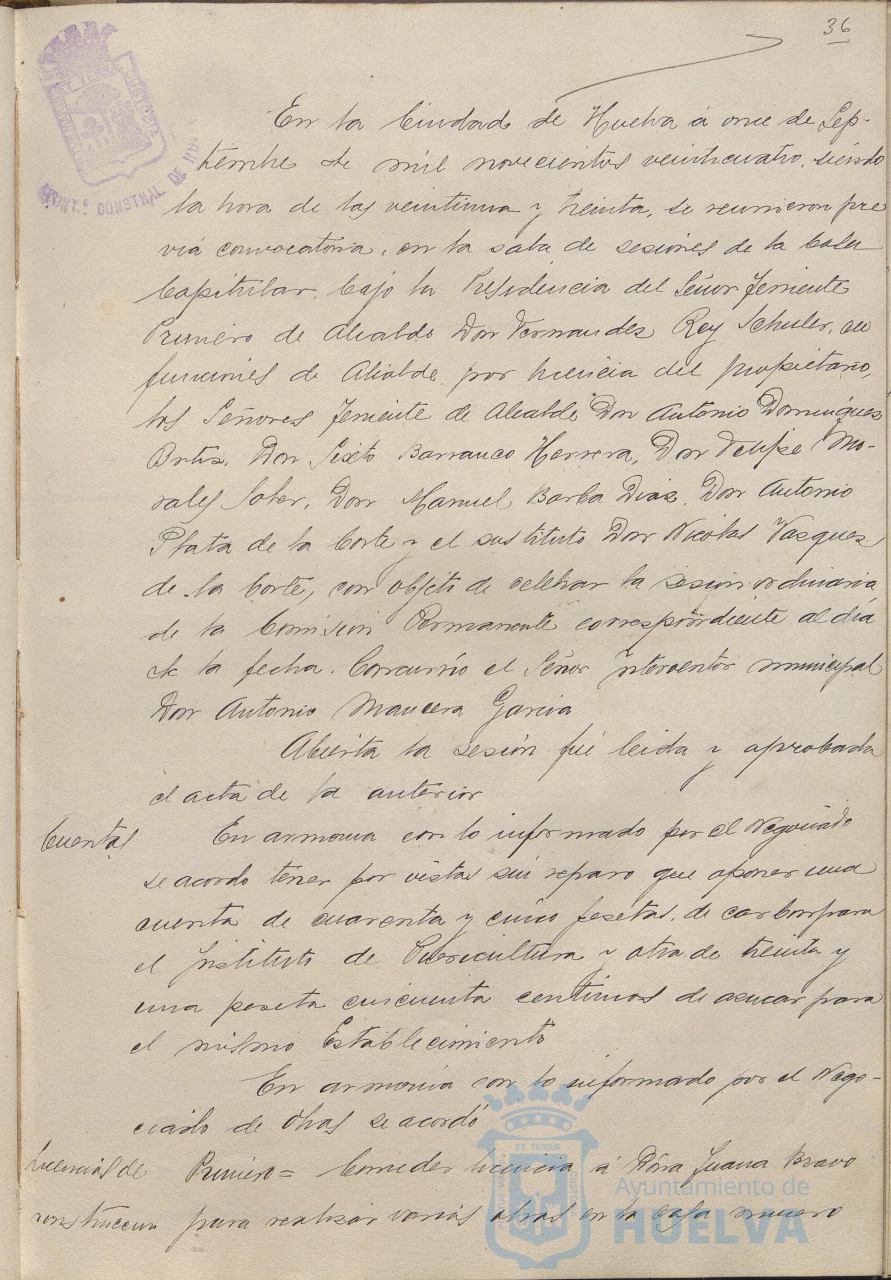 36
AYUNT.º CONSTNAL DE HU
En la Ciudad de Huelva á once de Sep-
tiembre de mil novecientos veinticuatro, siendo
la hora de las veintiuna y treinta, se reunieron pre
via convocatoria, en la sala de sesiones de la Casa
Capitular, bajo la Presidencia del Señor Teniente
Primero de Alcalde Don Fernandez Rey Schuler, en
funciones de Alcalde, por licencia del propietario,
los Señores Teniente de Alcalde Don Antonio Dominguez
Ortiz, Don Sixto Barranco Herrera, Don Felipe Mo-
rales Soler, Don Manuel Barba Diaz, Don Antonio
Plata de la Corte y el sustituto Don Nicolas Vazquez
de la Corte, con objeto de celebrar la sesión ordinaria
de la Comision Permanente correspondiente al día
de la fecha. Concurrió el Señor Interventor municipal
Don Antonio Mancera Garcia
Abierta la sesión fué leida y aprobada
el acta de la anterior
Cuentas
En armonia con lo informado por el Negociado
se acordo tener por vistas sin reparo que oponer una
cuenta de cuarenta y cinco pesetas, de carbon para
el Instituto de Puericultura y otra de treinta y
una peseta cincuenta centimos de azucar para
el mismo Establecimiento
En armonia con lo informado por el Nego-
ciado de Obras se acordó
Licencias de
construccion
Primero = Conceder licencia á Dóña Juana Bravo
para realizar varias obras en la casa numero
Ayuntamiento de
HUELVA